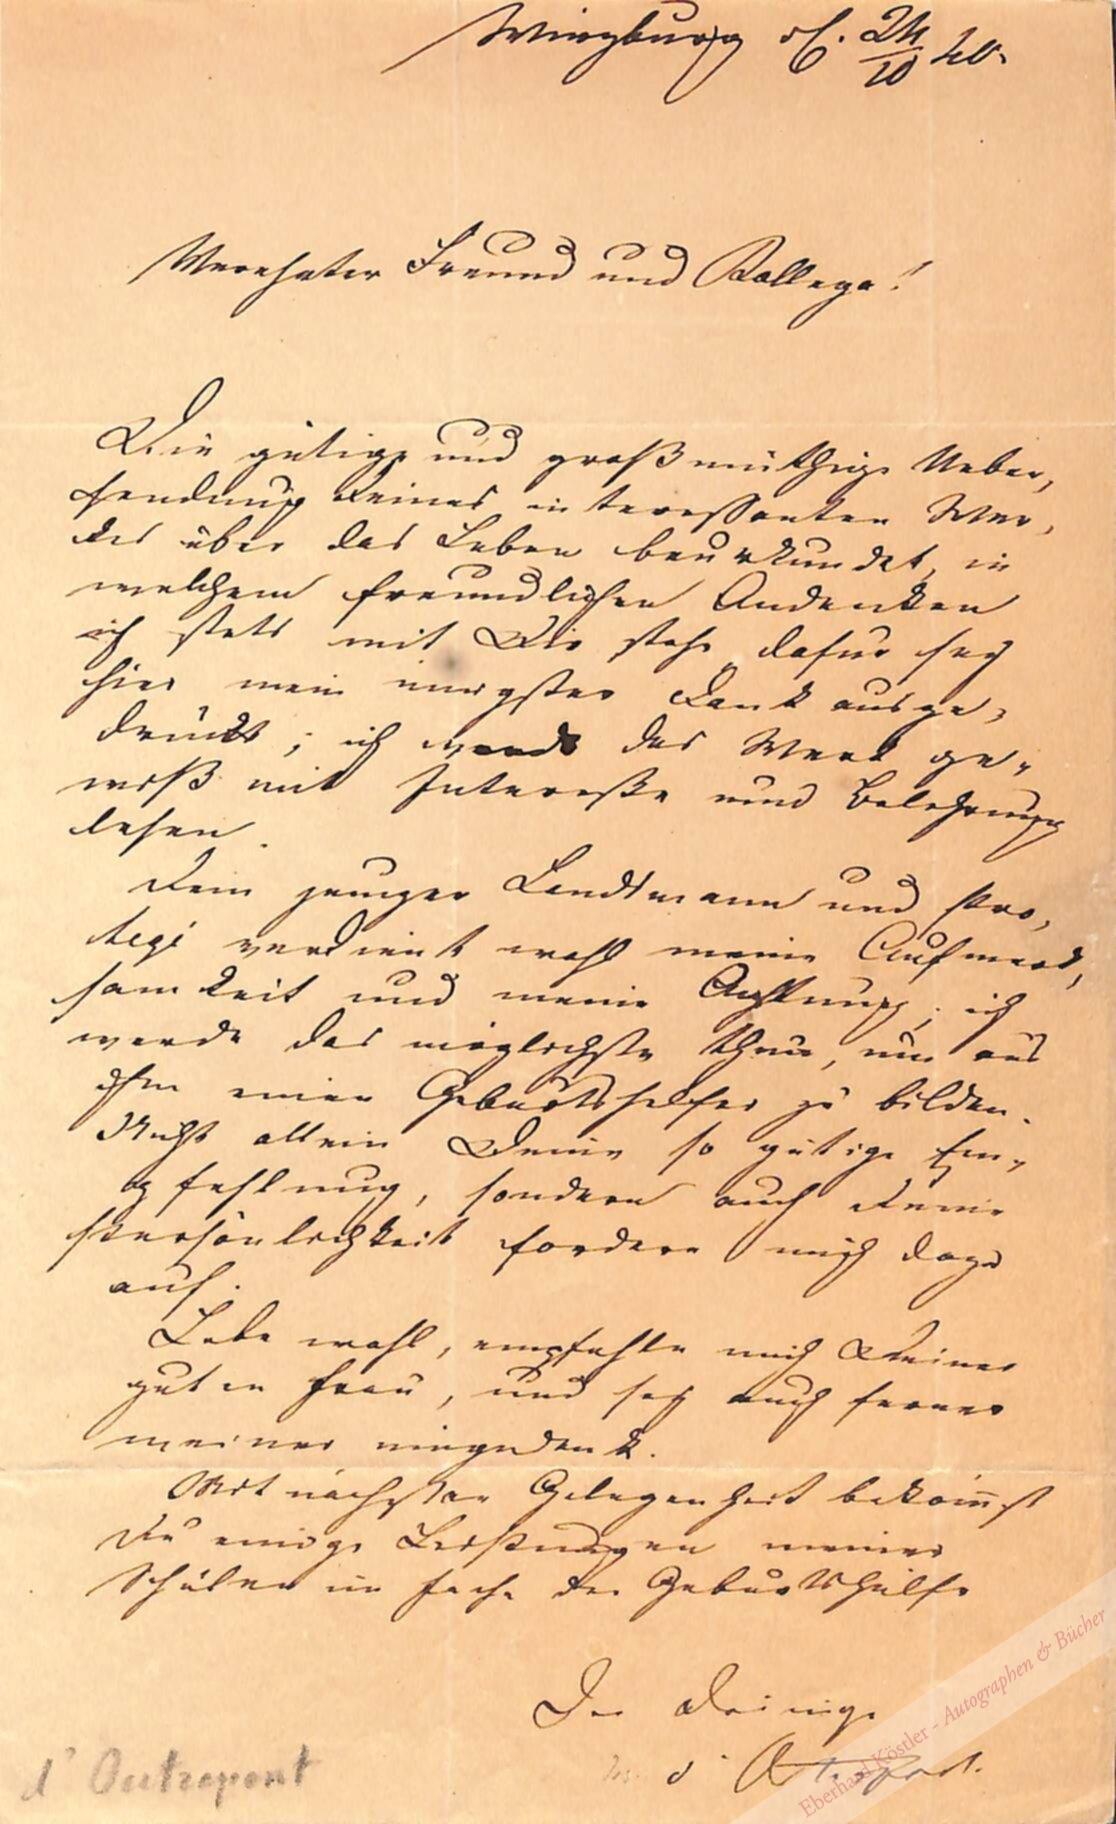 Würzburg d. 24/10 40.
Verehrter Freund und Kollege!
Die gütige und großmüthige Ueber,
sendung Deines interessanten Wer,
kes über das Leben beurkundet, in
welchem freundlichen Andenken
ich stets mit Dir stehe, dafür sey
hier mein innigster Dank ausge,
drückt; ich werde das Werk ge,
wiß mit Interesse und Belehrung
lesen.
Dein junger Landsmann und Pro,
tegé verdient wohl meine Aufmerk,
samkeit und meine Achtung; ich
werde das möglichste thun, um aus
ihm einen Geburtshelfer zu bilden.
Nicht allein Deine so gütige Em,
pfehlung, sondern auch seine
Persönlichkeit fordern mich dazu
auf.
Lebe wohl, empfehle mich Deiner
guten Frau, und sey auch ferner
meiner eingedenk.
Mit nächster Gelegenheit bekommst
Du einige Leistungen meiner
Schüler im Fache der Geburtshülfe
Der Deinige
d'Outrepont.
d'Outrepont
Eberhard Köstler - Autographen & Bücher